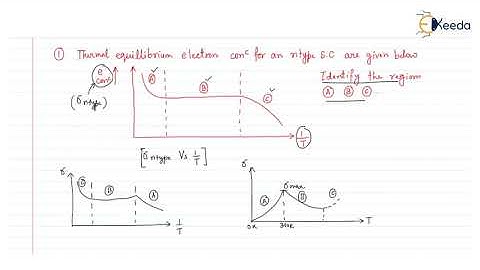 Ekeeda
① Thermal equilibrium electron conc for an n type S.C are given below
Identify the region
Ⓐ Ⓑ Ⓒ
e
conc
(σ ntype)
Ⓐ
Ⓑ
Ⓒ
1/T
[σ ntype Vs 1/T]
σ
Ⓑ
Ⓐ
1/T
σ
σmax
Ⓐ
Ⓑ
Ⓒ
0K
T